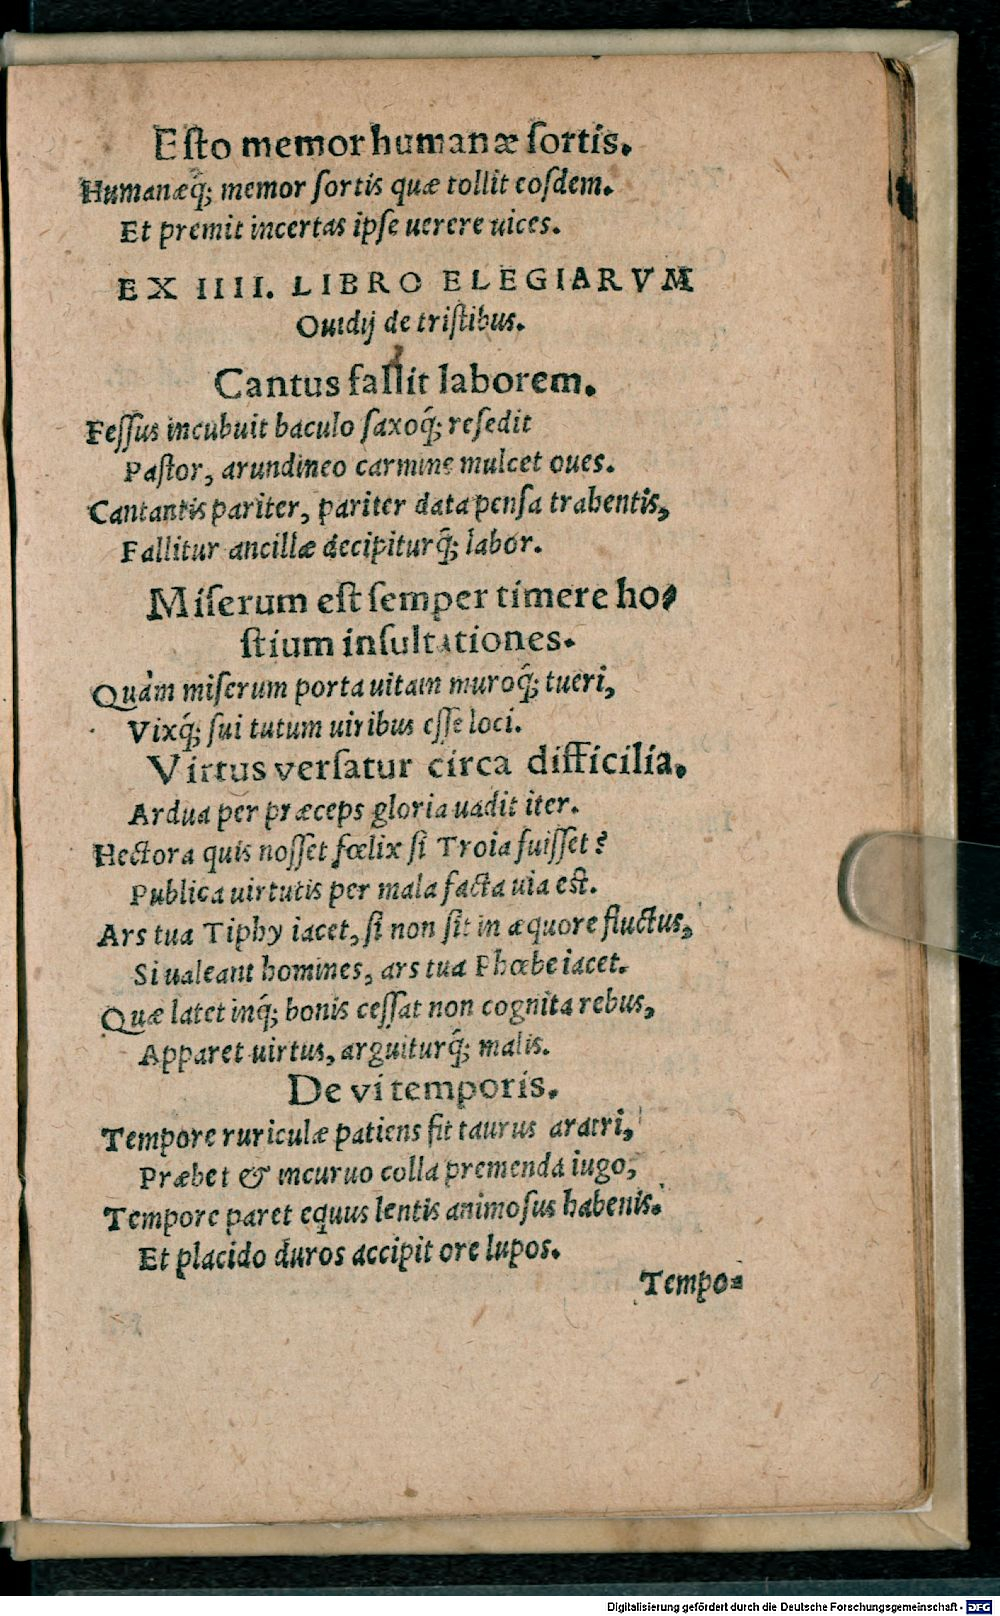 Eſto memor humanæ ſortis.
Humanæq́; memor ſortis quæ tollit eoſdem.
Et premit incertas ipſe uerere uices.
EX IIII. LIBRO ELEGIARVM
Ouidij de triſtibus.
Cantus fallit laborem.
Feſſus incubuit baculo ſaxoq́; reſedit
Paſtor, arundineo carmine mulcet oues.
Cantantis pariter, pariter data penſa trahentis,
Fallitur ancillæ decipiturq́; labor.
Miſerum eſt ſemper timere ho⸗
ſtium inſultationes.
Quàm miſerum porta uitam muroq́; tueri,
Vixq́; ſui tutum uiribus eſſe loci.
Virtus verſatur circa difficilia.
Ardua per præceps gloria uadit iter.
Hectora quis noſſet fœlix ſi Troia fuiſſet?
Publica uirtutis per mala facta uia eſt.
Ars tua Tiphy iacet, ſi non ſit in æquore fluctus,
Si ualeant homines, ars tua Phœbe iacet.
Quæ latet inq́; bonis ceſſat non cognita rebus,
Apparet uirtus, arguiturq́; malis.
De vi temporis.
Tempore ruriculæ patiens fit taurus aratri,
Præbet & incuruo colla premenda iugo,
Tempore paret equus lentis animoſus habenis.
Et placido duros accipit ore lupos.
Tempo⸗
Digitalisierung gefördert durch die Deutsche Forschungsgemeinschaft - DFG